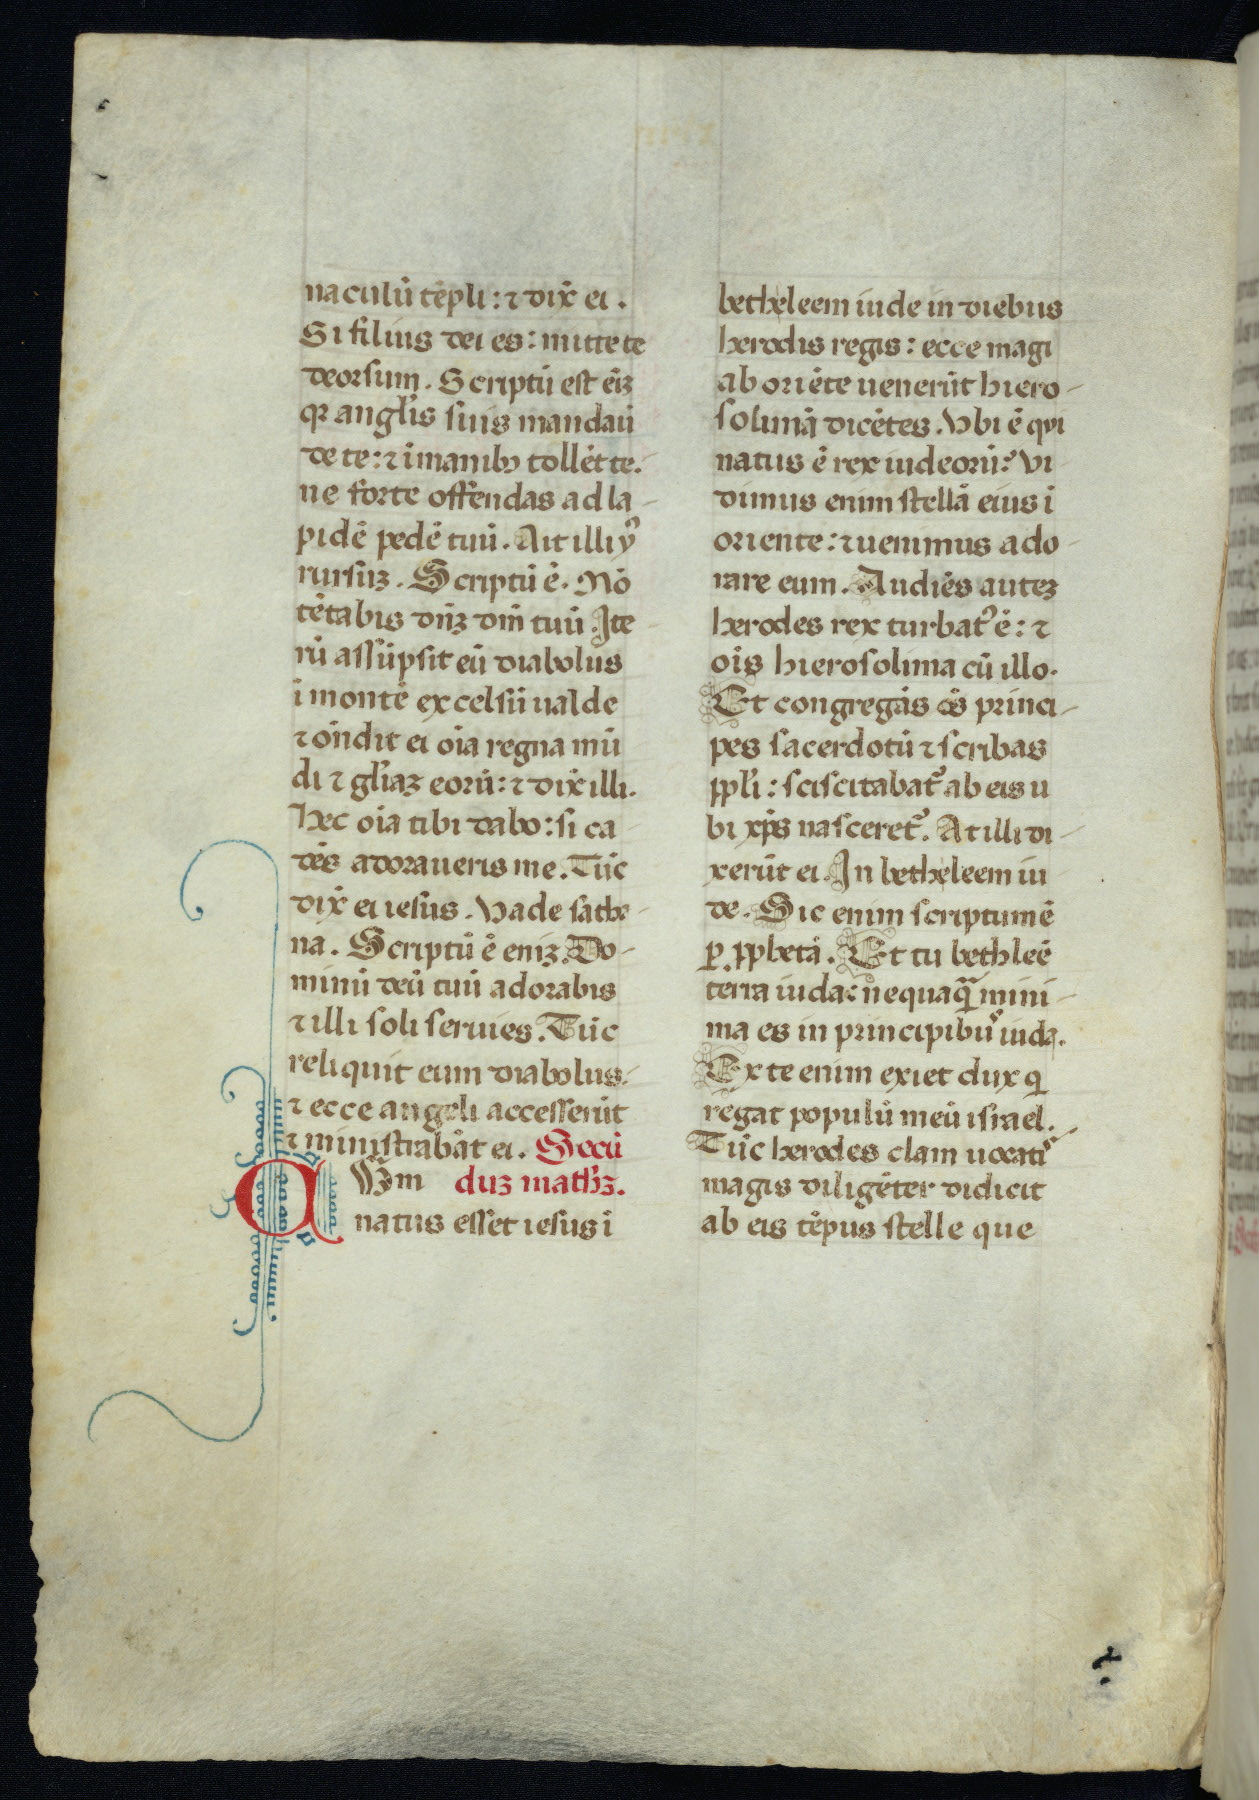 naculū tēpli: ⁊ dix̄ ei.
Si filius dei es: mitte te
deorsum. Scriptū est eīȝ
qꝛ angl̄is suis mandaū
de te: ⁊ ī manibꝫ tollēt te.
ne forte offendas ad la-
pidē pedē tuū. Ait illi yꝰ
rursūȝ. Scriptū ē. Nō
tētabis dn̄ȝ dm̄ tuū Ite-
rū assūpsit eū diabolus
ī montē excelsū ualde
⁊ ōndit ei oīa regna mū
di ⁊ gl̄iaȝ eorū: ⁊ dix̄ illi.
Hec oīa tibi dabo: si ca-
dēs adoraueris me. Tūc
dix̄ ei iesus. Vade satha-
na. Scriptū ē eniȝ. Do-
minū deū tuū adorabis
⁊ illi soli seruies. Tūc
reliquit eum diabolus.
⁊ ecce angeli accesserūt
⁊ ministrabāt ei. Secū
duȝ math̄ȝ.
CVm
natus esset iesus ī
betheleem iude in diebus
herodis regis: ecce magi
ab oriēte uenerūt hiero-
solimā dicētes. Vbi ē qui
natus ē rex iudeorū? Vi-
dimus enim stellā eius ī
oriente: ⁊ uenimus ado-
rare eum. Audiēs auteȝ
herodes rex turbatꝰ ē: ⁊
oīs hierosolima cū illo.
Et congregās oēs princi-
pes sacerdotū ⁊ scribas
ppl̄i: sciscitabat᷑ ab eis u
bi xp̄s nasceret᷑. At illi di-
xerūt ei. In betheleem iu
de. Sic enim scriptum ē
ꝑ ꝓphetā. Et tu bethleē
terra iuda: nequaq̄ mini-
ma es in principibus iuda.
Ex te enim exiet dux q̇
regat populū meū israel.
Tūc herodes clam uocatis
magis diligēter didicit
ab eis tēpus stelle que